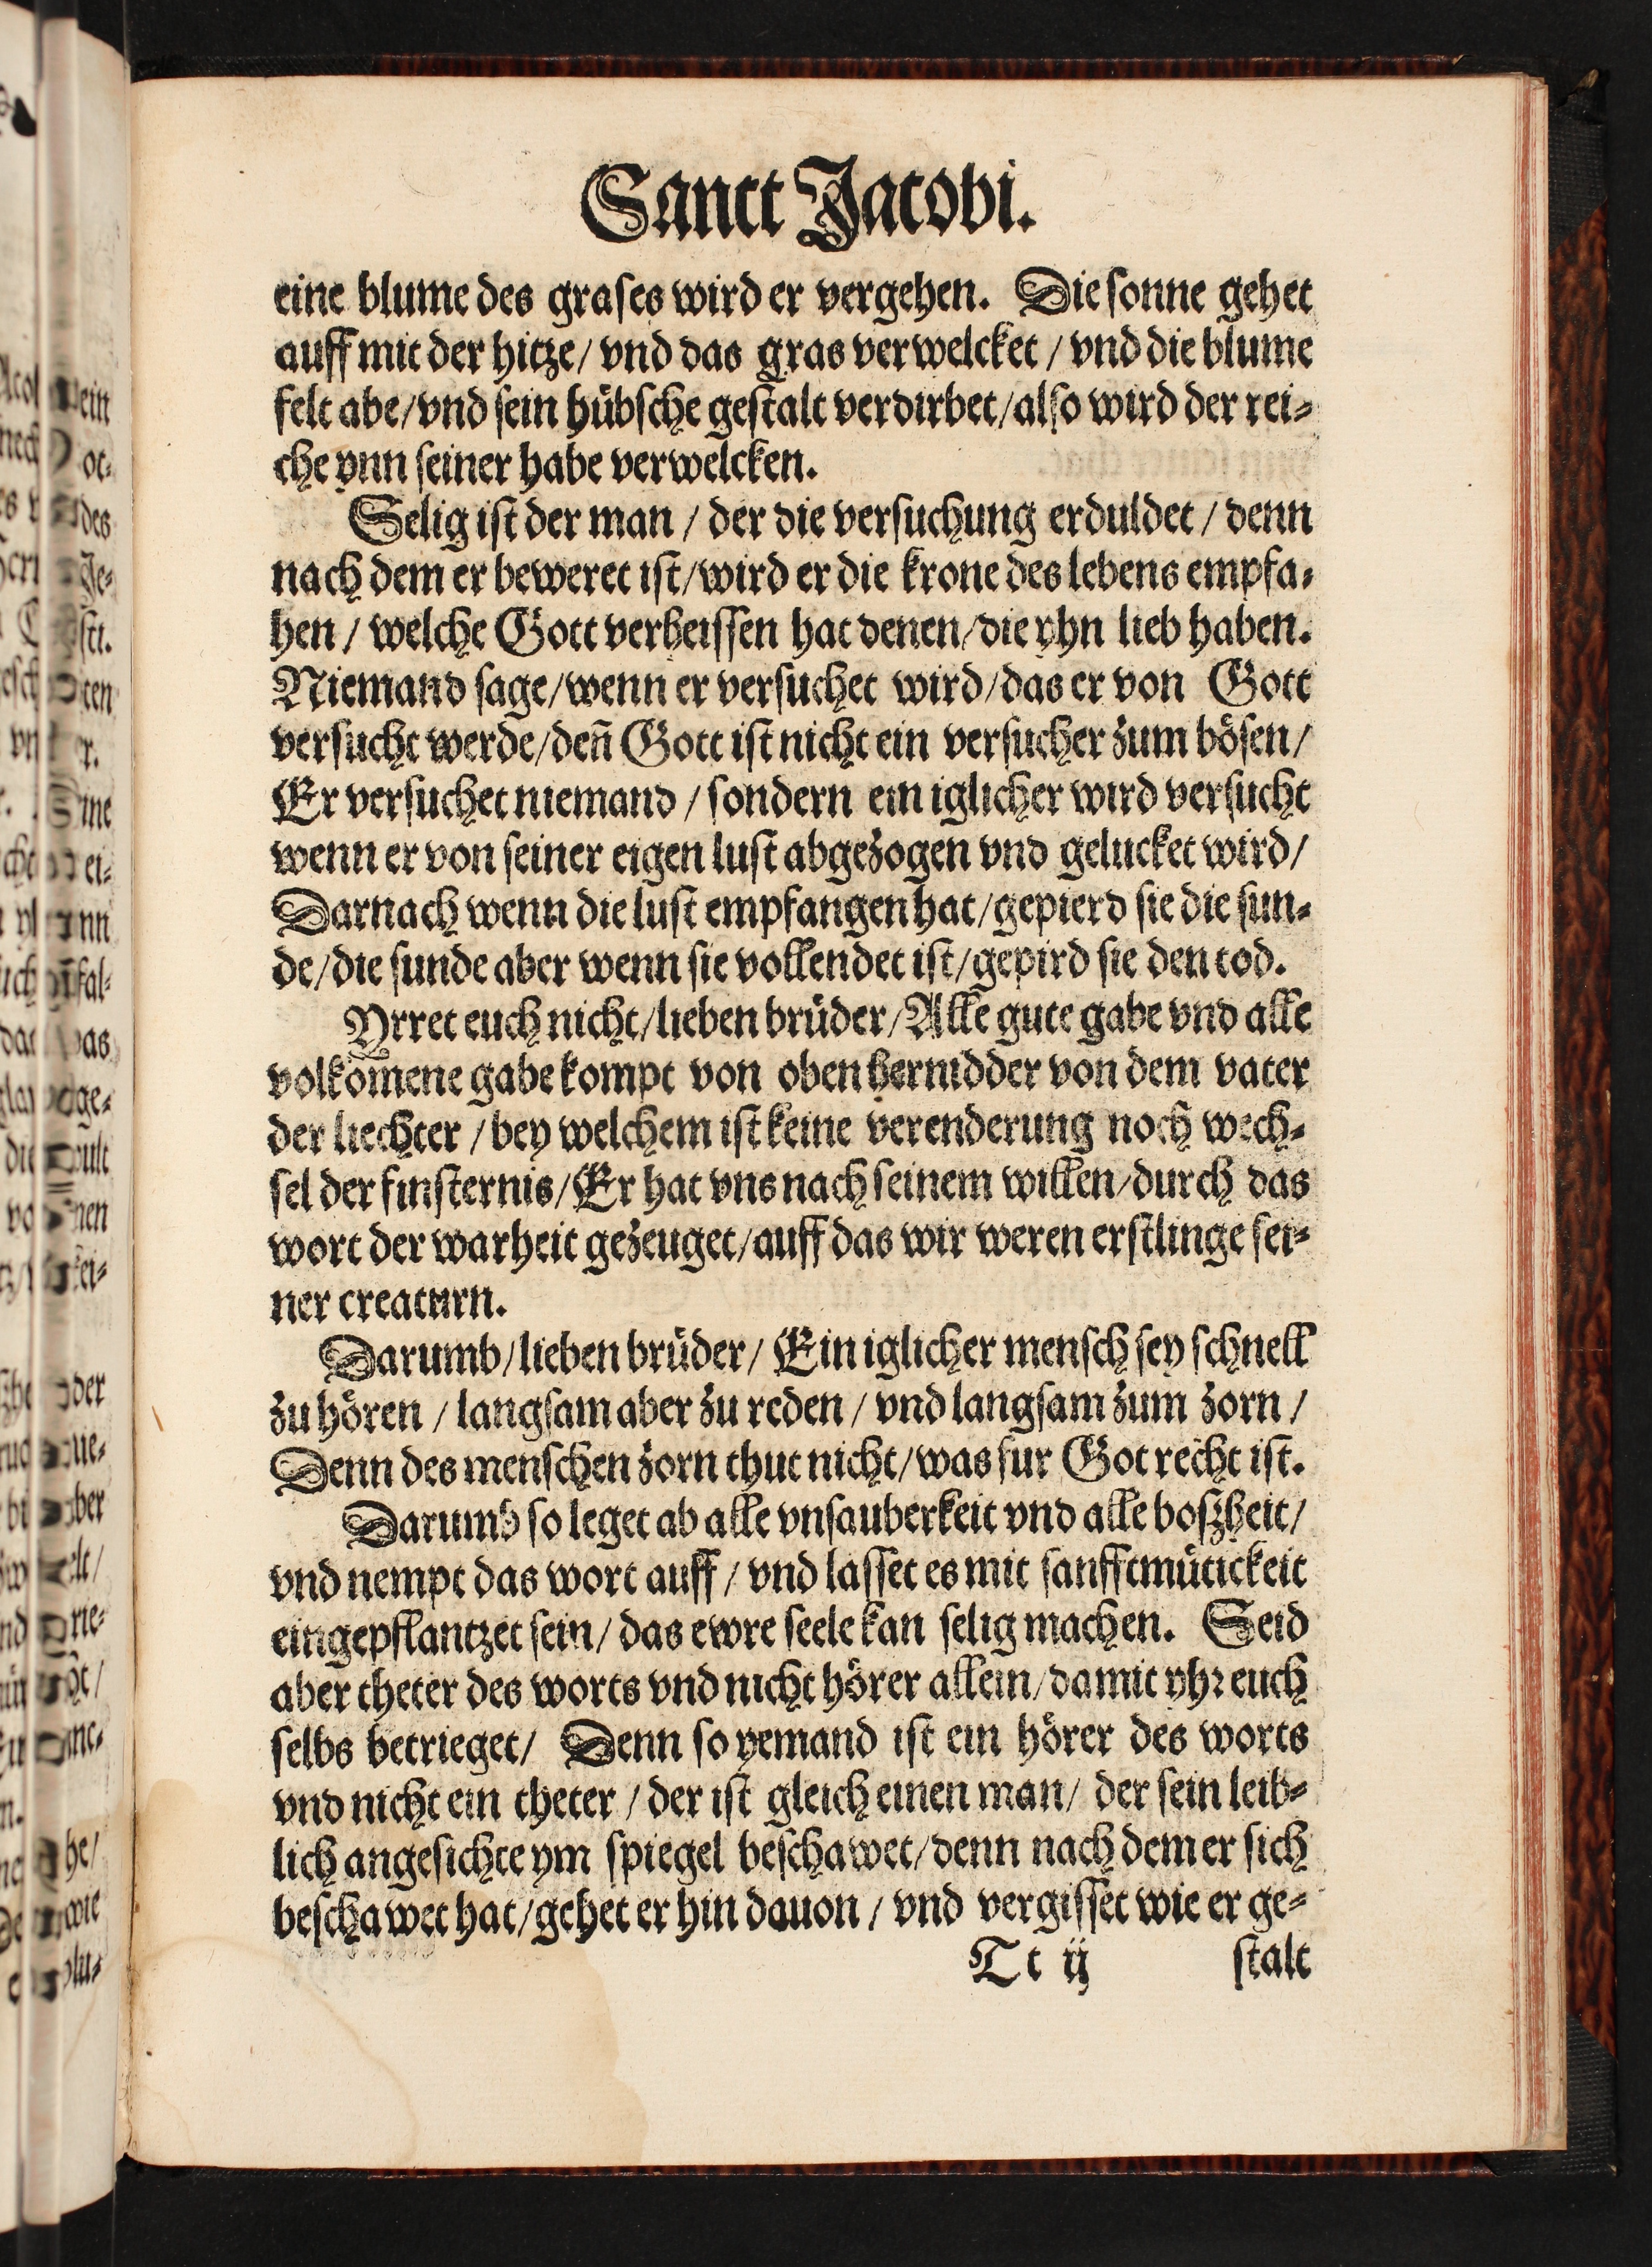 Sanct Jacobi.
eine blume des grases wird er vergehen. Die sonne gehet
auff mit der hitze/ vnd das gras verwelcket / vnd die blume
felt abe/vnd sein hübsche gestalt verdirbet/also wird der rei⸗
che ynn seiner habe verwelcken.
Selig ist der man / der die versuchung erduldet / denn
nach dem er beweret ist/wird er die krone des lebens empfa⸗
hen / welche Gott verheissen hat denen/die yhn lieb haben.
Niemand sage/wenn er versuchet wird/das er von Gott
versucht werde/deñ Gott ist nicht ein versucher zum bösen/
Er versuchet niemand / sondern ein iglicher wird versucht
wenn er von seiner eigen lust abgezogen vnd gelucket wird/
Darnach wenn die lust empfangen hat/gepierd sie die sun⸗
de/die sunde aber wenn sie vollendet ist/gepird sie den tod.
Yrret euch nicht/lieben brüder/Alle gute gabe vnd alle
volkömene gabe kompt von oben hernidder von dem vater
der liechter / bey welchem ist keine verenderung noch wech⸗
sel der finsternis/Er hat vns nach seinem willen/durch das
wort der warheit gezeuget/auff das wir weren erstlinge sei⸗
ner creaturn.
Darumb/lieben brüder/ Ein iglicher mensch sey schnell
zu hören / langsam aber zu reden / vnd langsam zum zorn /
Denn des menschen zorn thut nicht/was fur Got recht ist.
Darumb so leget ab alle vnsauberkeit vnd alle boszheit/
vnd nempt das wort auff / vnd lasset es mit sanfftmütickeit
eingepflantzet sein/ das ewre seele kan selig machen. Seid
aber theter des worts vnd nicht hörer allein/damit yhr euch
selbs betrieget/ Denn so yemand ist ein hörer des worts
vnd nicht ein theter / der ist gleich einen man/ der sein leib⸗
lich angesichte ym spiegel beschawet/denn nach dem er sich
beschawet hat/gehet er hin dauon / vnd vergisset wie er ge⸗
Tt ij stalt